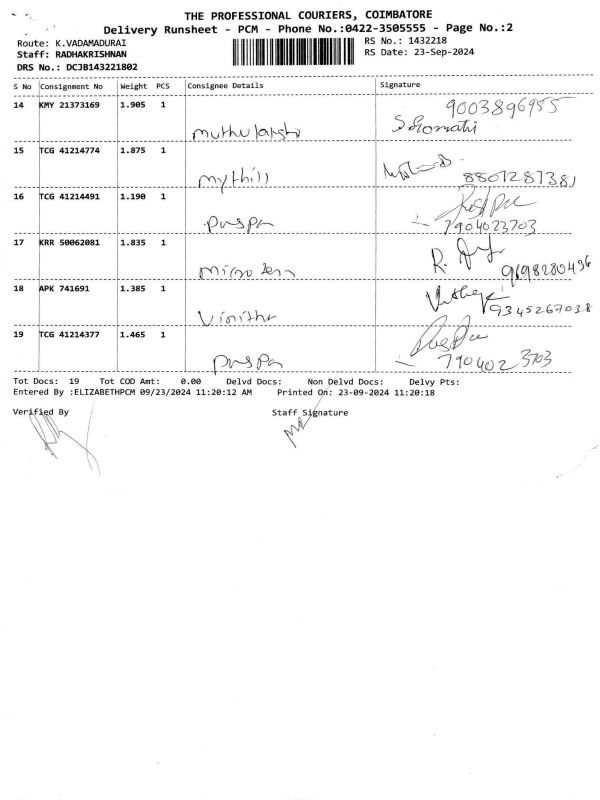 THE PROFESSIONAL COURIERS, COIMBATORE
Delivery Runsheet - PCM - Phone No.:0422-3505555 - Page No.:2
Route: K.VADAMADURAI RS No.: 1432218
Staff: RADHAKRISHNAN RS Date: 23-Sep-2024
DRS No.: DCJB143221802
S No Consignment No Weight PCS Consignee Details Signature
14 KMY 21373169 1.905 1 9003896955
15 TCG 41214774 1.875 1
mythili 8801287381
16 TCG 41214491 1.190 1
puspa 7904023703
17 KRR 50062081 1.835 1 R.
micro 9698280436
18 APK 741691 1.385 1
vinitha 9345267038
19 TCG 41214377 1.465 1
puspa 7904023703
Tot Docs: 19 Tot COD Amt: 0.00 Delvd Docs: Non Delvd Docs: Delvy Pts:
Entered By :ELIZABETHPCM 09/23/2024 11:20:12 AM Printed On: 23-09-2024 11:20:18
Verified By Staff Signature